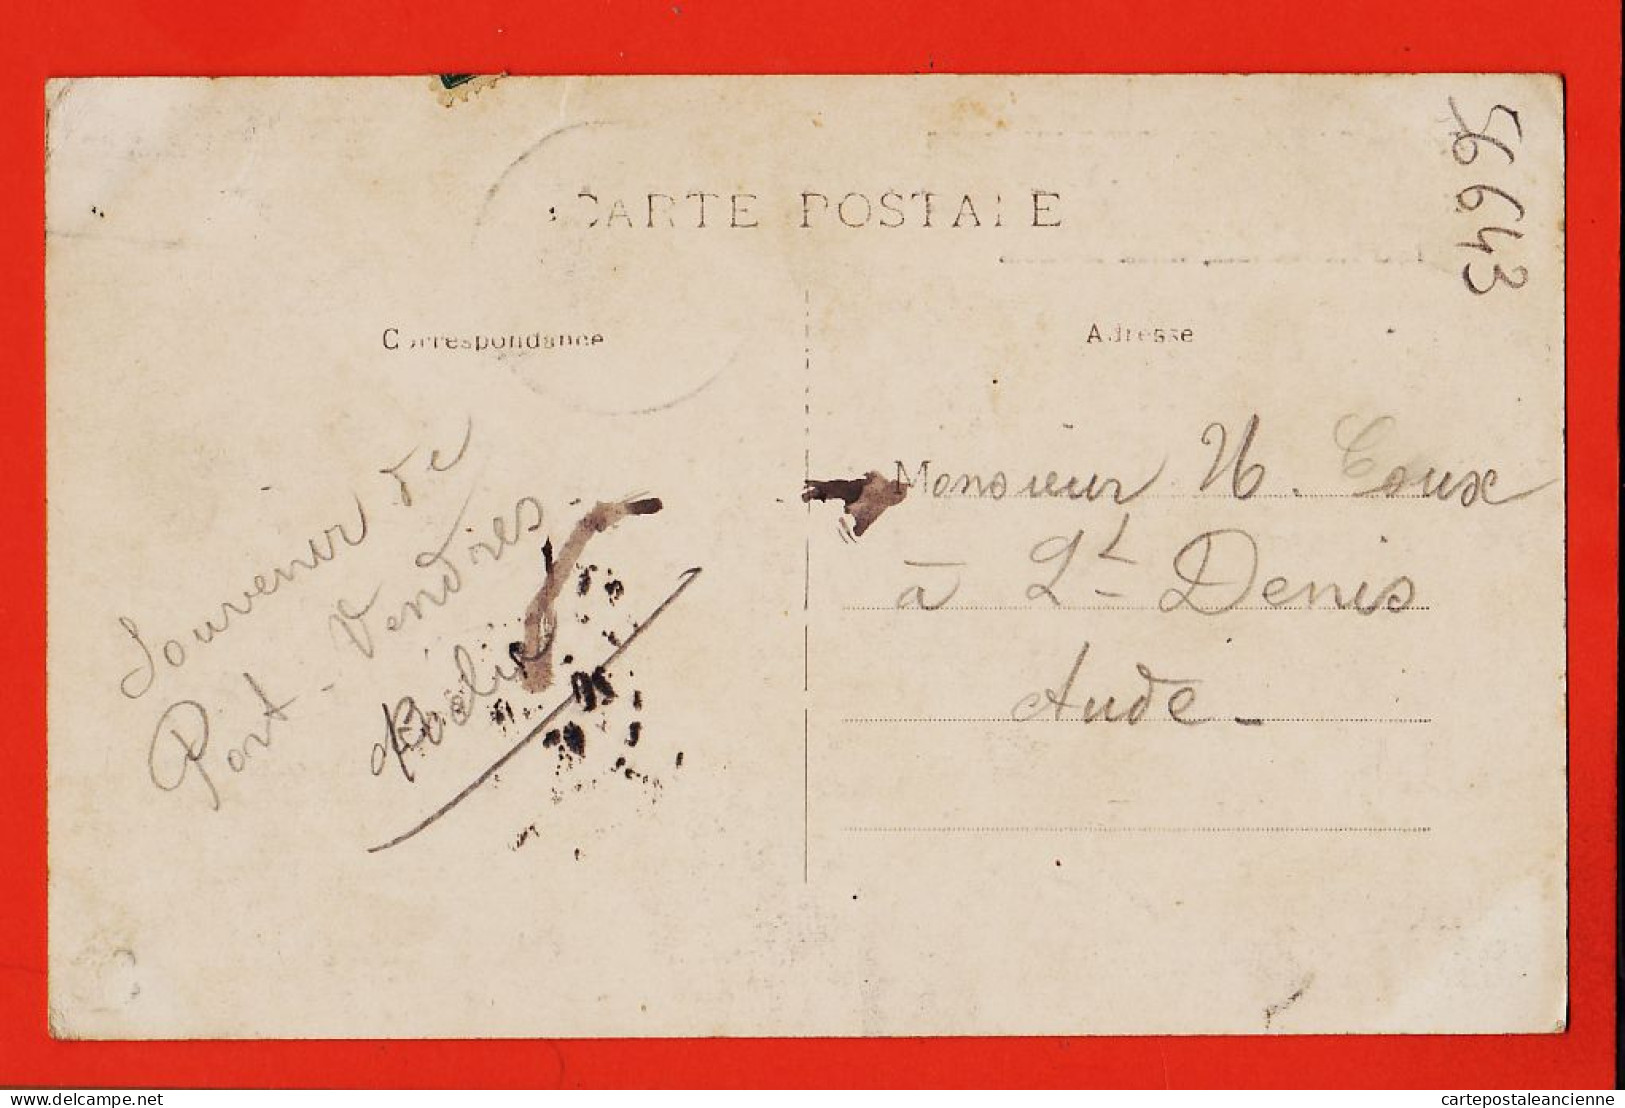 56643
CARTE POSTALE
Correspondance
Adresse
Souvenir de
Port-Vendres
Monsieur H. Coux
à St Denis
Aude -
delcampe.net
cartepostaleancienne